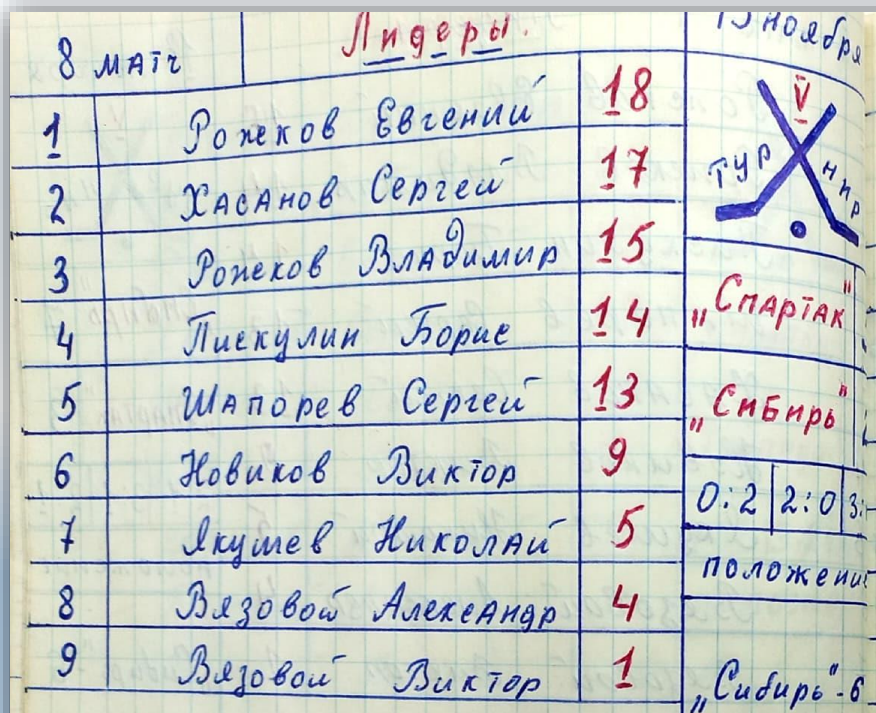 8 матч Лидеры. 13 ноября
1 Рожков Евгений 18
2 Хасанов Сергей 17
3 Рожков Владимир 15
4 Пискулин Борис 14
5 Шапорев Сергей 13
6 Новиков Виктор 9
7 Якушев Николай 5
8 Вязовой Александр 4
9 Вязовой Виктор 1
V
ТУРНИР
„Спартак"
„Сибирь"
0:2 2:0 3:
положени
„Сибирь"-6